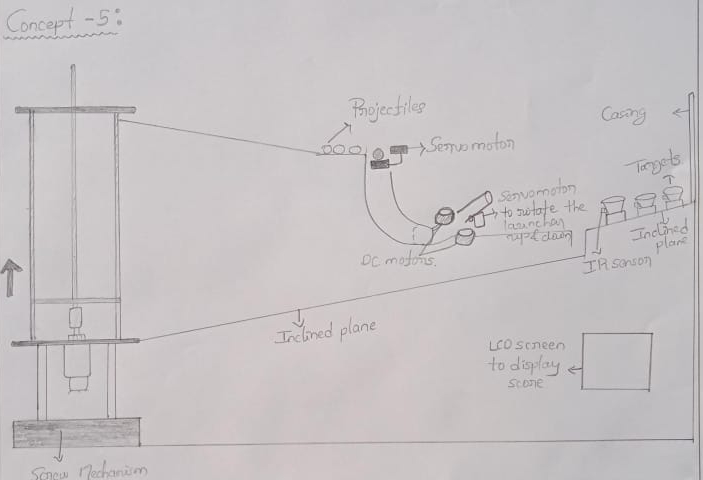 Concept -5:
Projectiles
Servomotor
Casing
Targets
Servomotor
to rotate the
launcher
up & down
DC motors.
Inclined
plane
IR sensor
Inclined plane
LCD screen
to display
score
Screw Mechanism